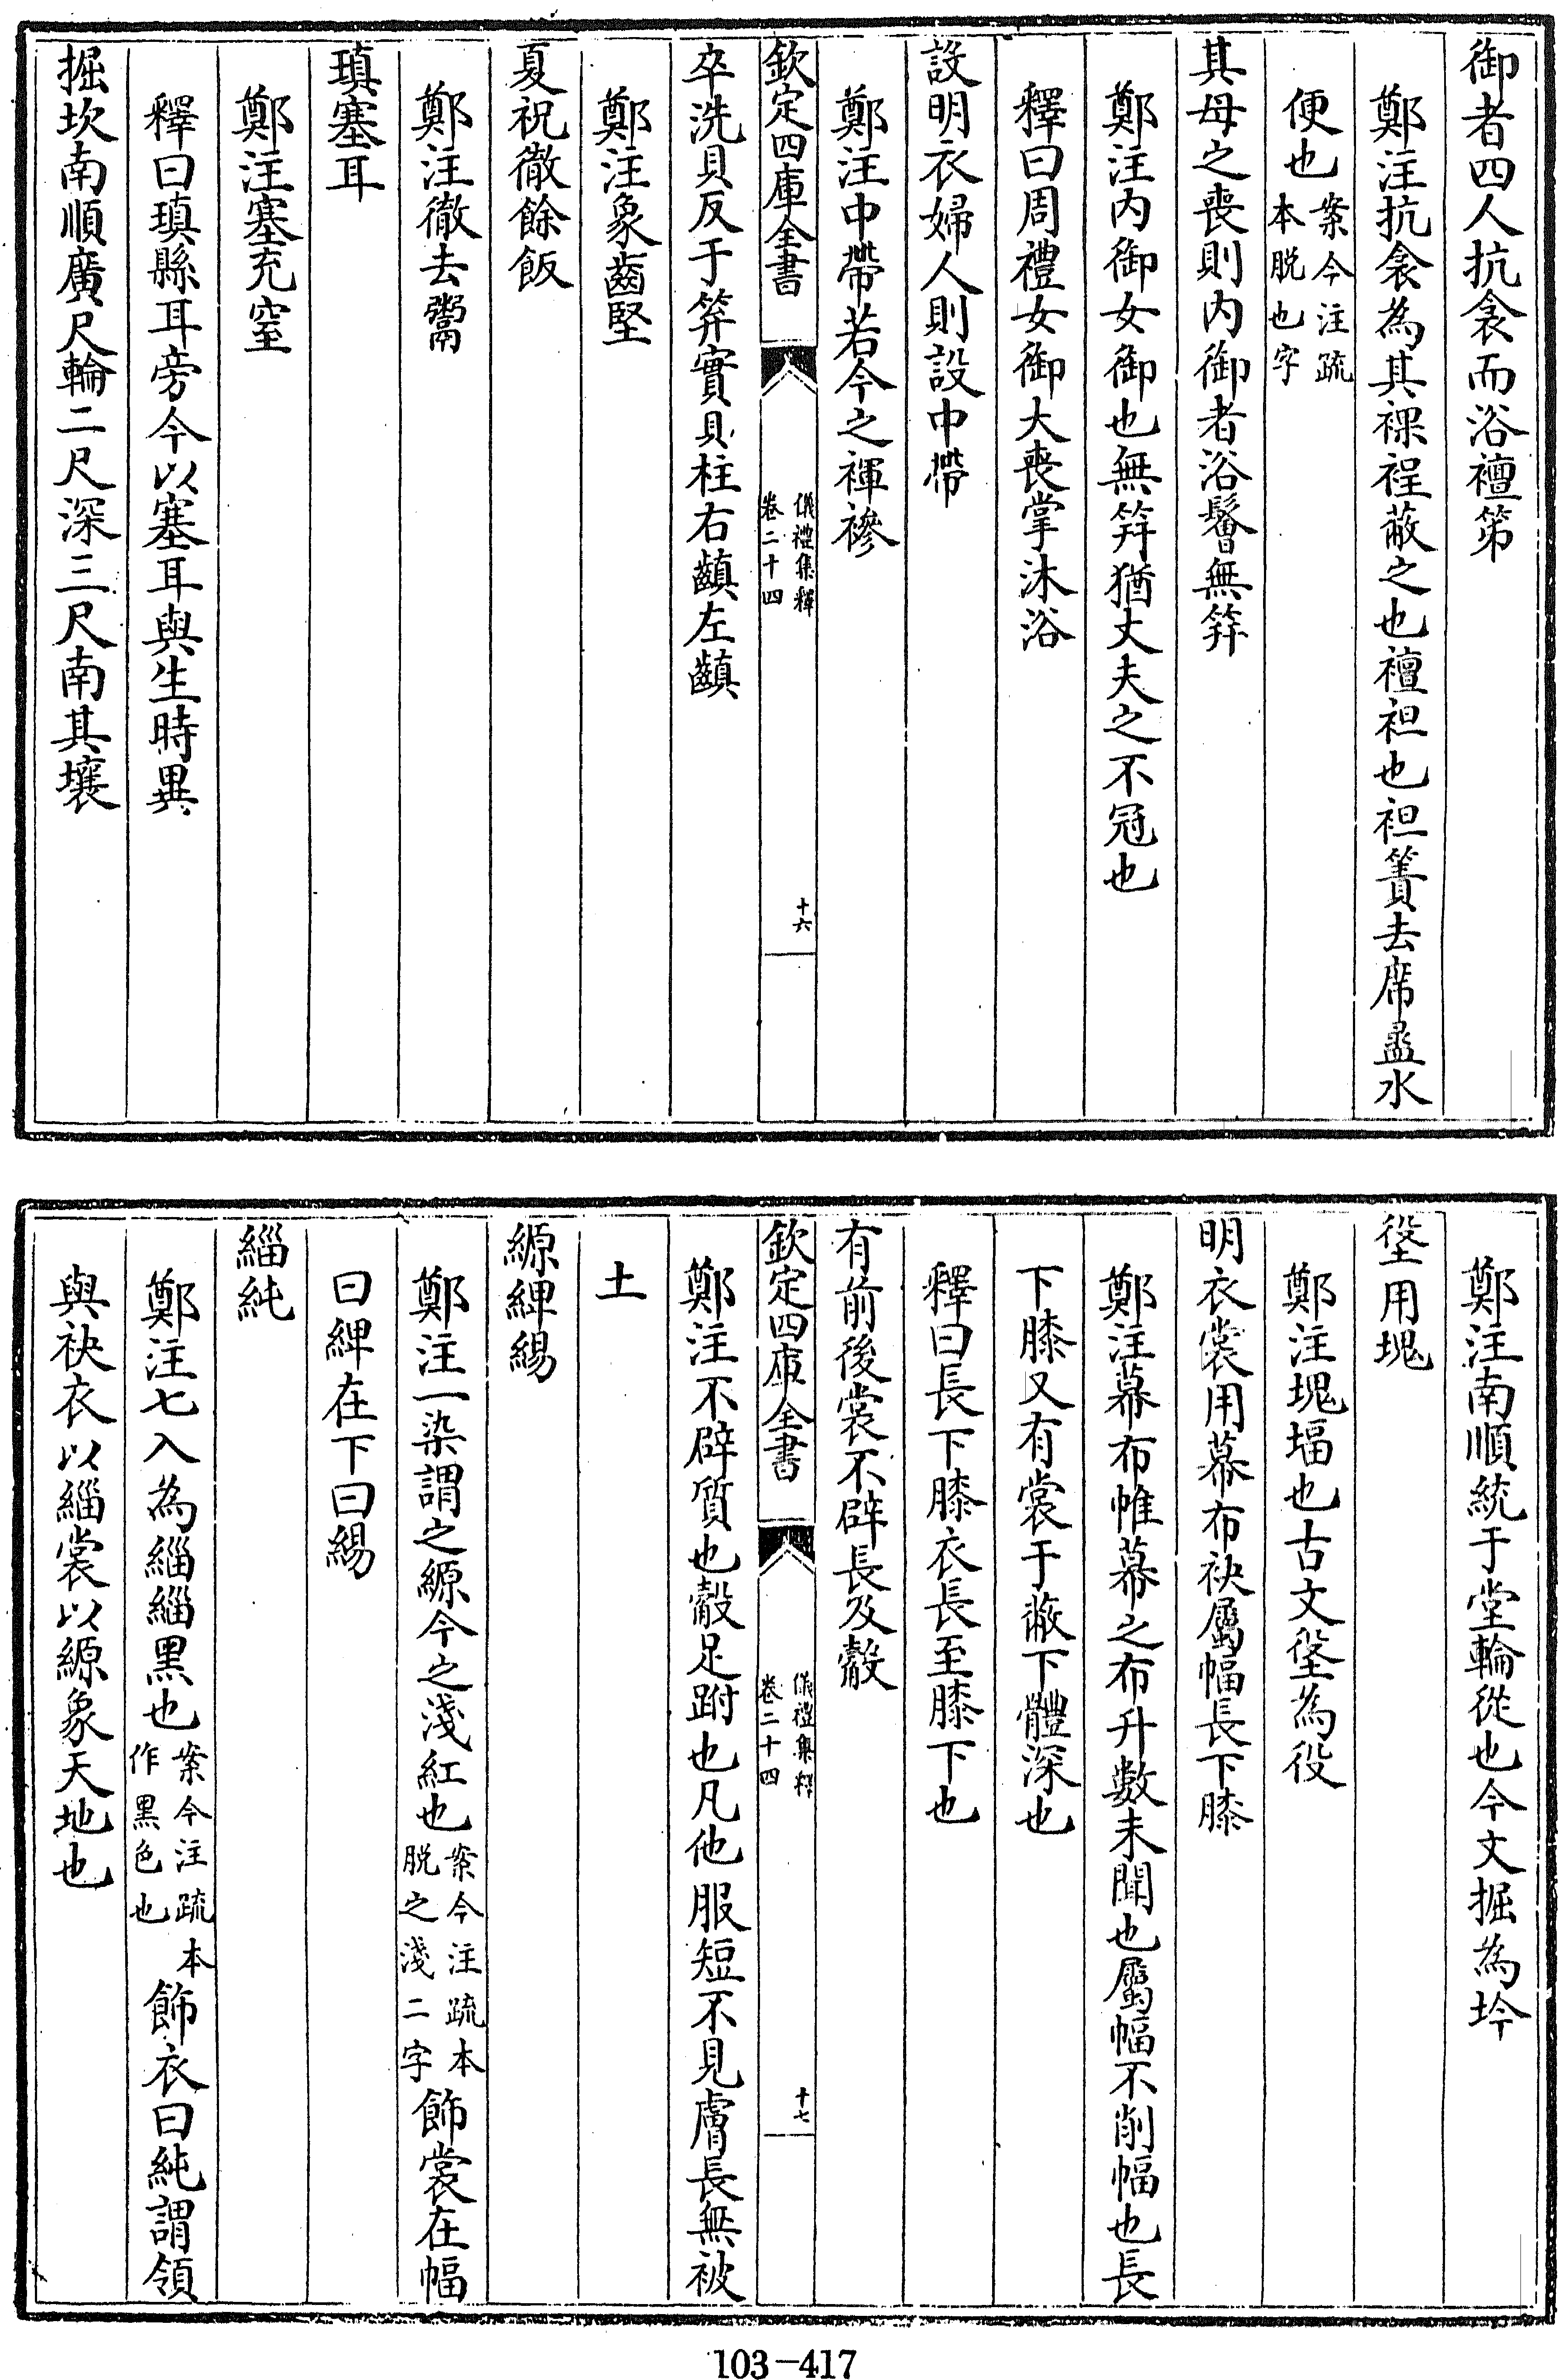 御者四人抗衾而浴襢笫
鄭注抗衾為其裸裎蔽之也襢袒也袒簀去席盝水
便也案今注疏本脱也字
其母之喪則内御者浴鬠無笄
鄭注内御女御也無笄猶丈夫之不冠也
釋曰周禮女御大喪掌沐浴
設明衣婦人則設中帶
鄭注中帶若今之褌襂
欽定四庫全書 儀禮集釋 卷二十四 十六
卒洗貝反于笲實貝柱右齻左齻
鄭注象齒堅
夏祝徹餘飯
鄭注徹去鬻
瑱塞耳
鄭注塞充窒
釋曰瑱縣耳旁今以塞耳與生時異
掘坎南順廣尺輪二尺深三尺南其壤
鄭注南順統于堂輪從也今文掘為坅
垼用塊
鄭注塊堛也古文垼為役
明衣裳用幕布袂屬幅長下膝
鄭注幕布帷幕之布升數未聞也屬幅不削幅也長
下膝又有裳于蔽下體深也
釋曰長下膝衣長至膝下也
有前後裳不辟長及觳
欽定四庫全書 儀禮集釋 卷二十四 十七
鄭注不辟質也觳足跗也凡他服短不見膚長無被
土
縓綼緆
鄭注一染謂之縓今之淺紅也案今注疏本脱之淺二字飾裳在幅
曰綼在下曰緆
緇純
鄭注七入為緇緇黑也案今注疏本作黑色也飾衣曰純謂領
與袂衣以緇裳以縓象天地也
103-417